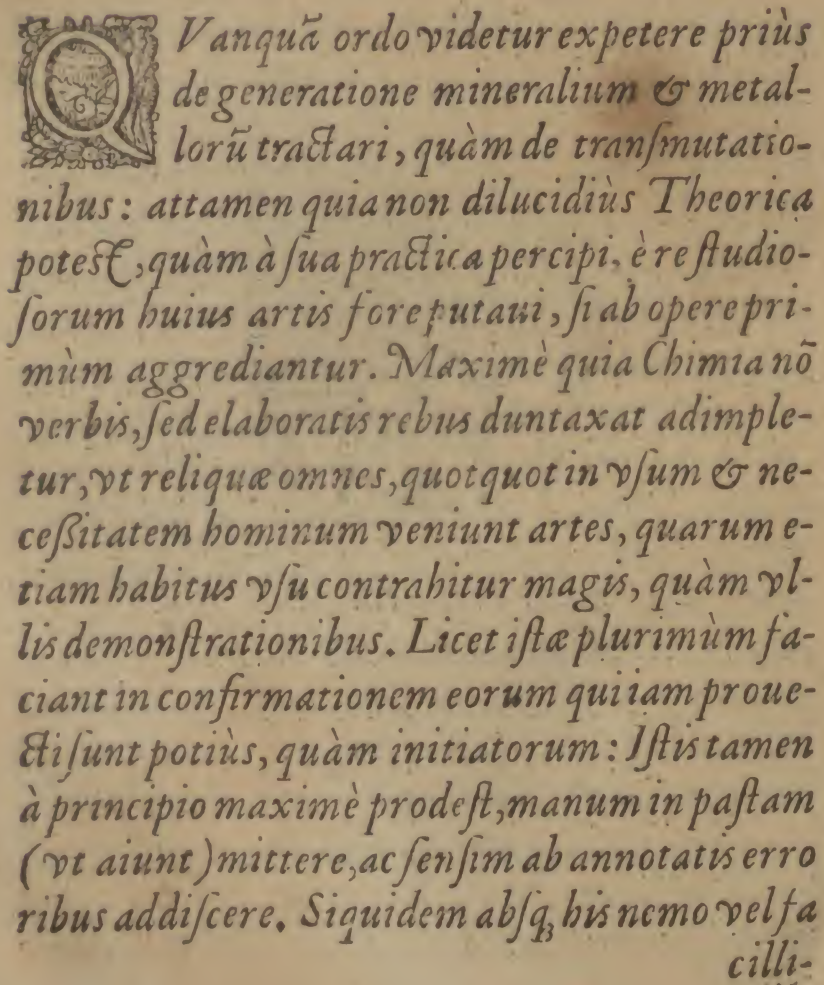 QVanquã ordo videtur expetere priùs
de generatione mineralium & metal-
lorũ tractari, quàm de transmutatio-
nibus: attamen quia non dilucidiùs Theorica
potest, quàm à sua practica percipi, è re studio-
sorum huius artis fore putaui, si ab opere pri-
mùm aggrediantur. Maximè quia Chimia nõ
verbis, sed elaboratis rebus duntaxat adimple-
tur, vt reliquæ omnes, quotquot in vsum & ne-
cessitatem hominum veniunt artes, quarum e-
tiam habitus vsu contrahitur magis, quàm vl-
lis demonstrationibus. Licet istæ plurimùm fa-
ciant in confirmationem eorum qui iam proue-
cti sunt potiùs, quàm initiatorum: Istis tamen
à principio maximè prodest, manum in pastam
(vt aiunt) mittere, ac sensim ab annotatis erro
ribus addiscere. Siquidem absq; his nemo vel fa
cilli-